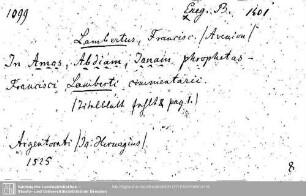 1099 Exeg. B. 1601
Lambertus, Francisc. /Avenion/
In Amos, Abdiam, Ionam, phrophetas -
Francisci Lamberti commentarii.
/Titelblatt fehlt & pag. 1./
Argentorati /Jo: Hervagius/.
1525 8
Sächsische Landesbibliothek -
Staats- und Universitätsbibliothek Dresden